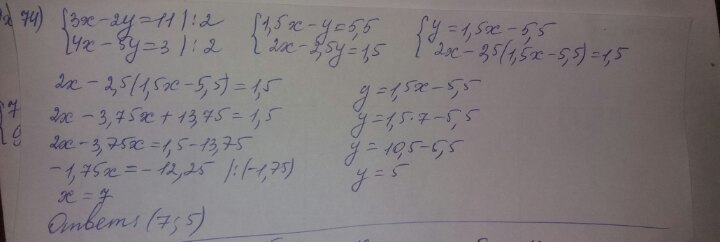 74) {3x-2y=11 |:2 {1,5x-y=5,5 {y=1,5x-5,5
{4x-5y=3 |:2 {2x-2,5y=1,5 {2x-2,5(1,5x-5,5)=1,5
2x-2,5(1,5x-5,5)=1,5 y=1,5x-5,5
2x-3,75x+13,75=1,5 y=1,5·7-5,5
2x-3,75x=1,5-13,75 y=10,5-5,5
-1,75x=-12,25 |:(-1,75) y=5
x=7
Ответ: (7;5)